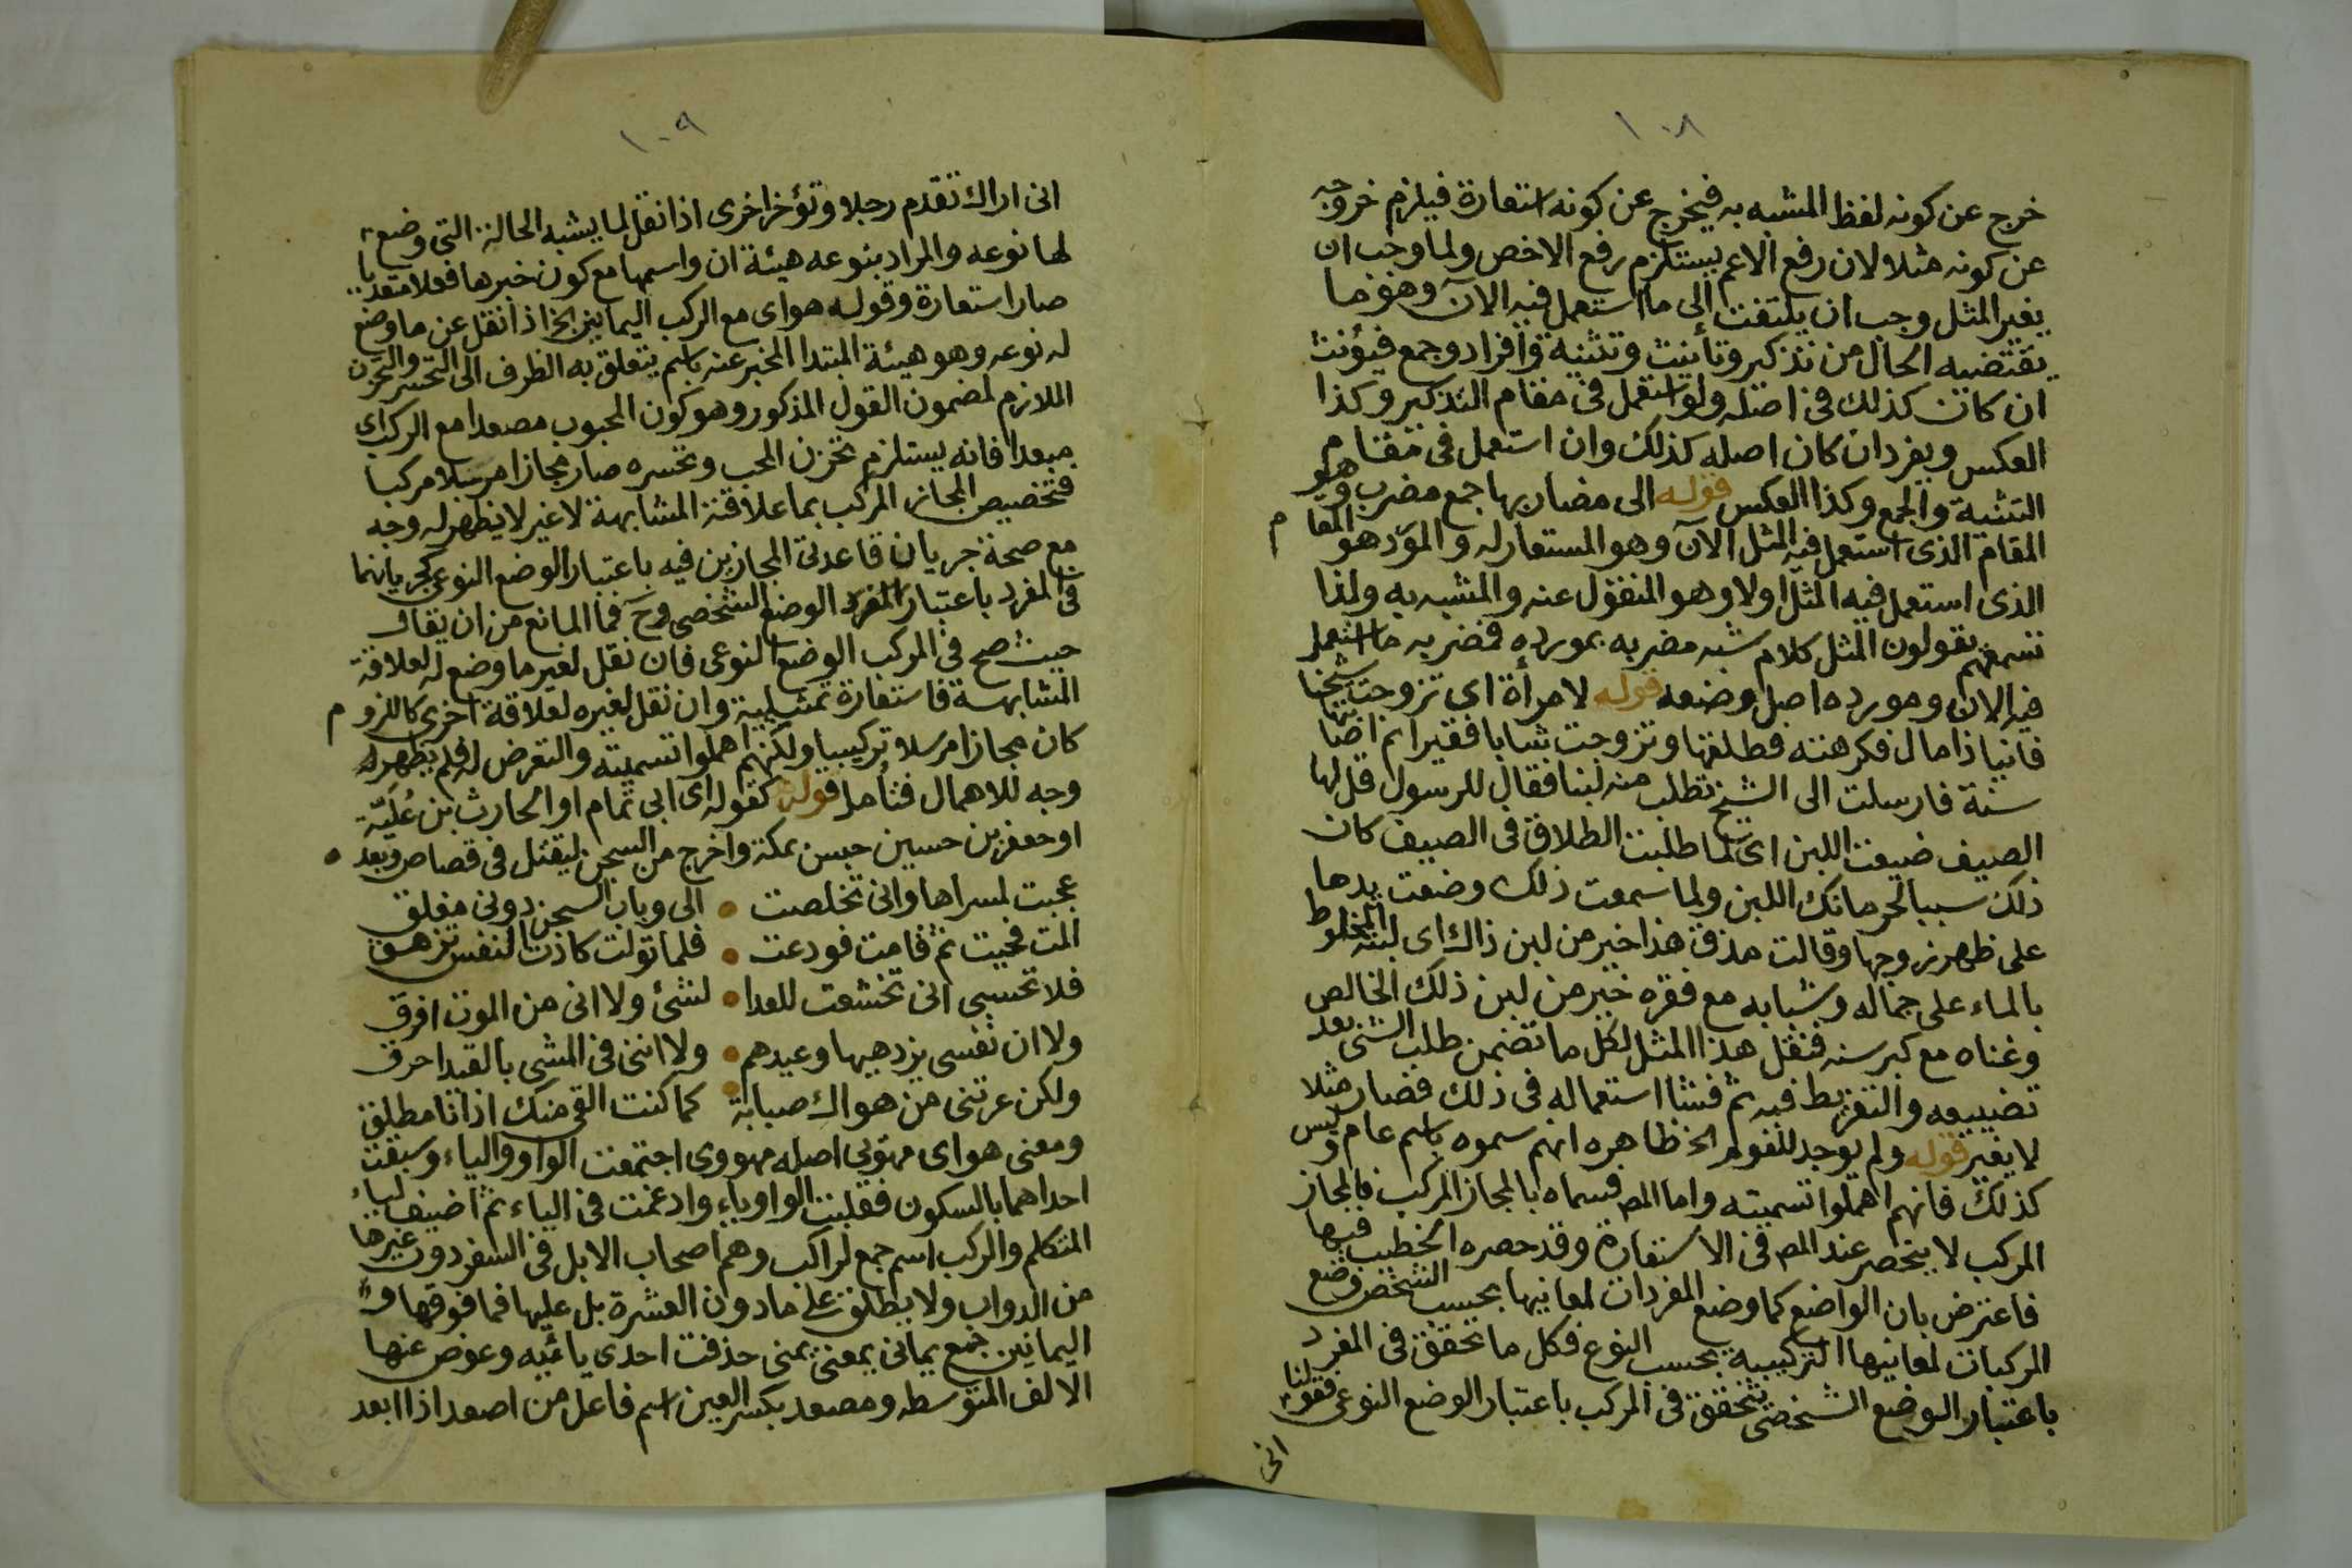 ١٠٨
خرج عن كونه لفظ المشبه به فيخرج عن كونه استعارة فيلزم خروجه
عن كونه مثلا لان رفع الاعم يستلزم رفع الاخص ولما وجب ان
يغير المثل وجب ان يلتفت الى ما استعمل فيه الآن وهو ما
يقتضيه الحال من تذكير وتأنيث وتثنية وافراد وجمع فيؤنث
ان كان كذلك فى اصله ولو استعمل فى مقام التذكير وكذا
العكس ويفرد ان كان اصله كذلك وان استعمل فى مقام
التثنية والجمع وكذا العكس قوله الى مضاربها جمع مضرب وهو
المقام الذى استعمل فيه المثل الآن وهو المستعار له والمورد هو المقام
الذى استعمل فيه المثل اولا وهو المنقول عنه والمشبه به ولذا
تسمعهم يقولون المثل كلام شبه مضربه بمورده فمضربه ما استعمل
فيه الان ومورده اصل وضعه قوله لامرأة اى تزوجت شيخا
فانيا ذا مال فكرهته فطلقها وتزوجت شابا فقيرا ثم اصابتها
سنة فارسلت الى الشيخ تطلب منه لبنا فقال للرسول قل لها
الصيف ضيعت اللبن اى لما طلبت الطلاق فى الصيف كان
ذلك سببا لحرمانك اللبن ولما سمعت ذلك وضعت يدها
على ظهر زوجها وقالت مذق هذا خير من لبن ذاك اى لبنه المخلوط
بالماء على جماله وشبابه مع فقره خير من لبن ذلك الخالص
وغناه مع كبر سنه فنقل هذا المثل لكل ما تضمن طلب الشئ بعد
تضييعه والتفريط فيه ثم فشا استعماله فى ذلك فصار مثلا
لا يغير قوله ولم يوجد للقوم الخ ظاهره انهم سموه باسم عام وليس
كذلك فانهم اهملوا تسميته واما المص فسماه بالمجاز المركب فالمجاز
المركب لا ينحصر عند المص فى الاستعارة وقد حصره الخطيب فيها
فاعترض بان الواضع كما وضع المفردات لمعانيها بحسب الشخص وضع
المركبات لمعانيها التركيبية بحسب النوع فكل ما تحقق فى المفرد
باعتبار الوضع الشخصى تتحقق فى المركب باعتبار الوضع النوعى فقولنا
انى
١٠٩
انى اراك تقدم رجلا وتؤخر اخرى اذا نقل لما يشبه الحالة التى وضع
لها نوعه والمراد بنوعه هيئة ان واسمها مع كون خبرها فعلا متعديا
صار استعارة وقوله هواى مع الركب اليمانين الخ اذا نقل عن ما وضع
له نوعه وهو هيئة المبتدا المخبر عنه باسم يتعلق به الظرف الى التحسر والتحزن
اللازم لمضمون القول المذكور وهو كون المحبوب مصعدا مع الركب اى
مبعدا فانه يستلزم تحزن المحب وتحسره صار مجازا مرسلا مركبا
فتخصيص المجاز المركب بما علاقته المشابهة لا غير لا يظهر له وجه
مع صحة جريان قاعدتى المجازين فيه باعتبار الوضع النوعى كجريانهما
فى المفرد باعتبار المفرد الوضع الشخصى وح فما المانع من ان يقال
حيث صح فى المركب الوضع النوعى فان نقل لغير ما وضع له لعلاقة
المشابهة فاستعارة تمثيلية وان نقل لغيره لعلاقة اخرى كاللزوم
كان مجازا مرسلا تركيبيا ولكنهم اهملوا تسميته والتعرض له فلم يظهر له
وجه للاهمال فتأمل قوله كقوله اى ابى تمام او الحارث بن علية
او جعفر بن حسين حبس بمكة واخرج من السجن ليقتل فى قصاص وبعد
عجبت لمسراها وانى تخلصت • الى وباب السجن دونى مغلق
المت فحيت ثم قامت فودعت • فلما تولت كادت النفس تزهق
فلا تحسبى انى تخشعت للعدا • لشئ ولا انى من الموت افرق
ولا ان نفسى يزدهيها وعيدهم • ولا اننى فى المشى بالقيد احرق
ولكن عرتنى من هواك صبابة • كما كنت القى منك اذ انا مطلق
ومعنى هواى مهويى اصله مهووى اجتمعت الواو والياء وسبقت
احداهما بالسكون فقلبت الواو ياء وادغمت فى الياء ثم اضيف لياء
المتكلم والركب اسم جمع لراكب وهم اصحاب الابل فى السفر دون غيرها
من الدواب ولا يطلق على ما دون العشرة بل عليها فما فوقها و
اليمانين جمع يمانى بمعنى يمنى حذفت احدى يائيه وعوض عنها
الالف المتوسطه ومصعد بكسر العين اسم فاعل من اصعد اذا ابعد